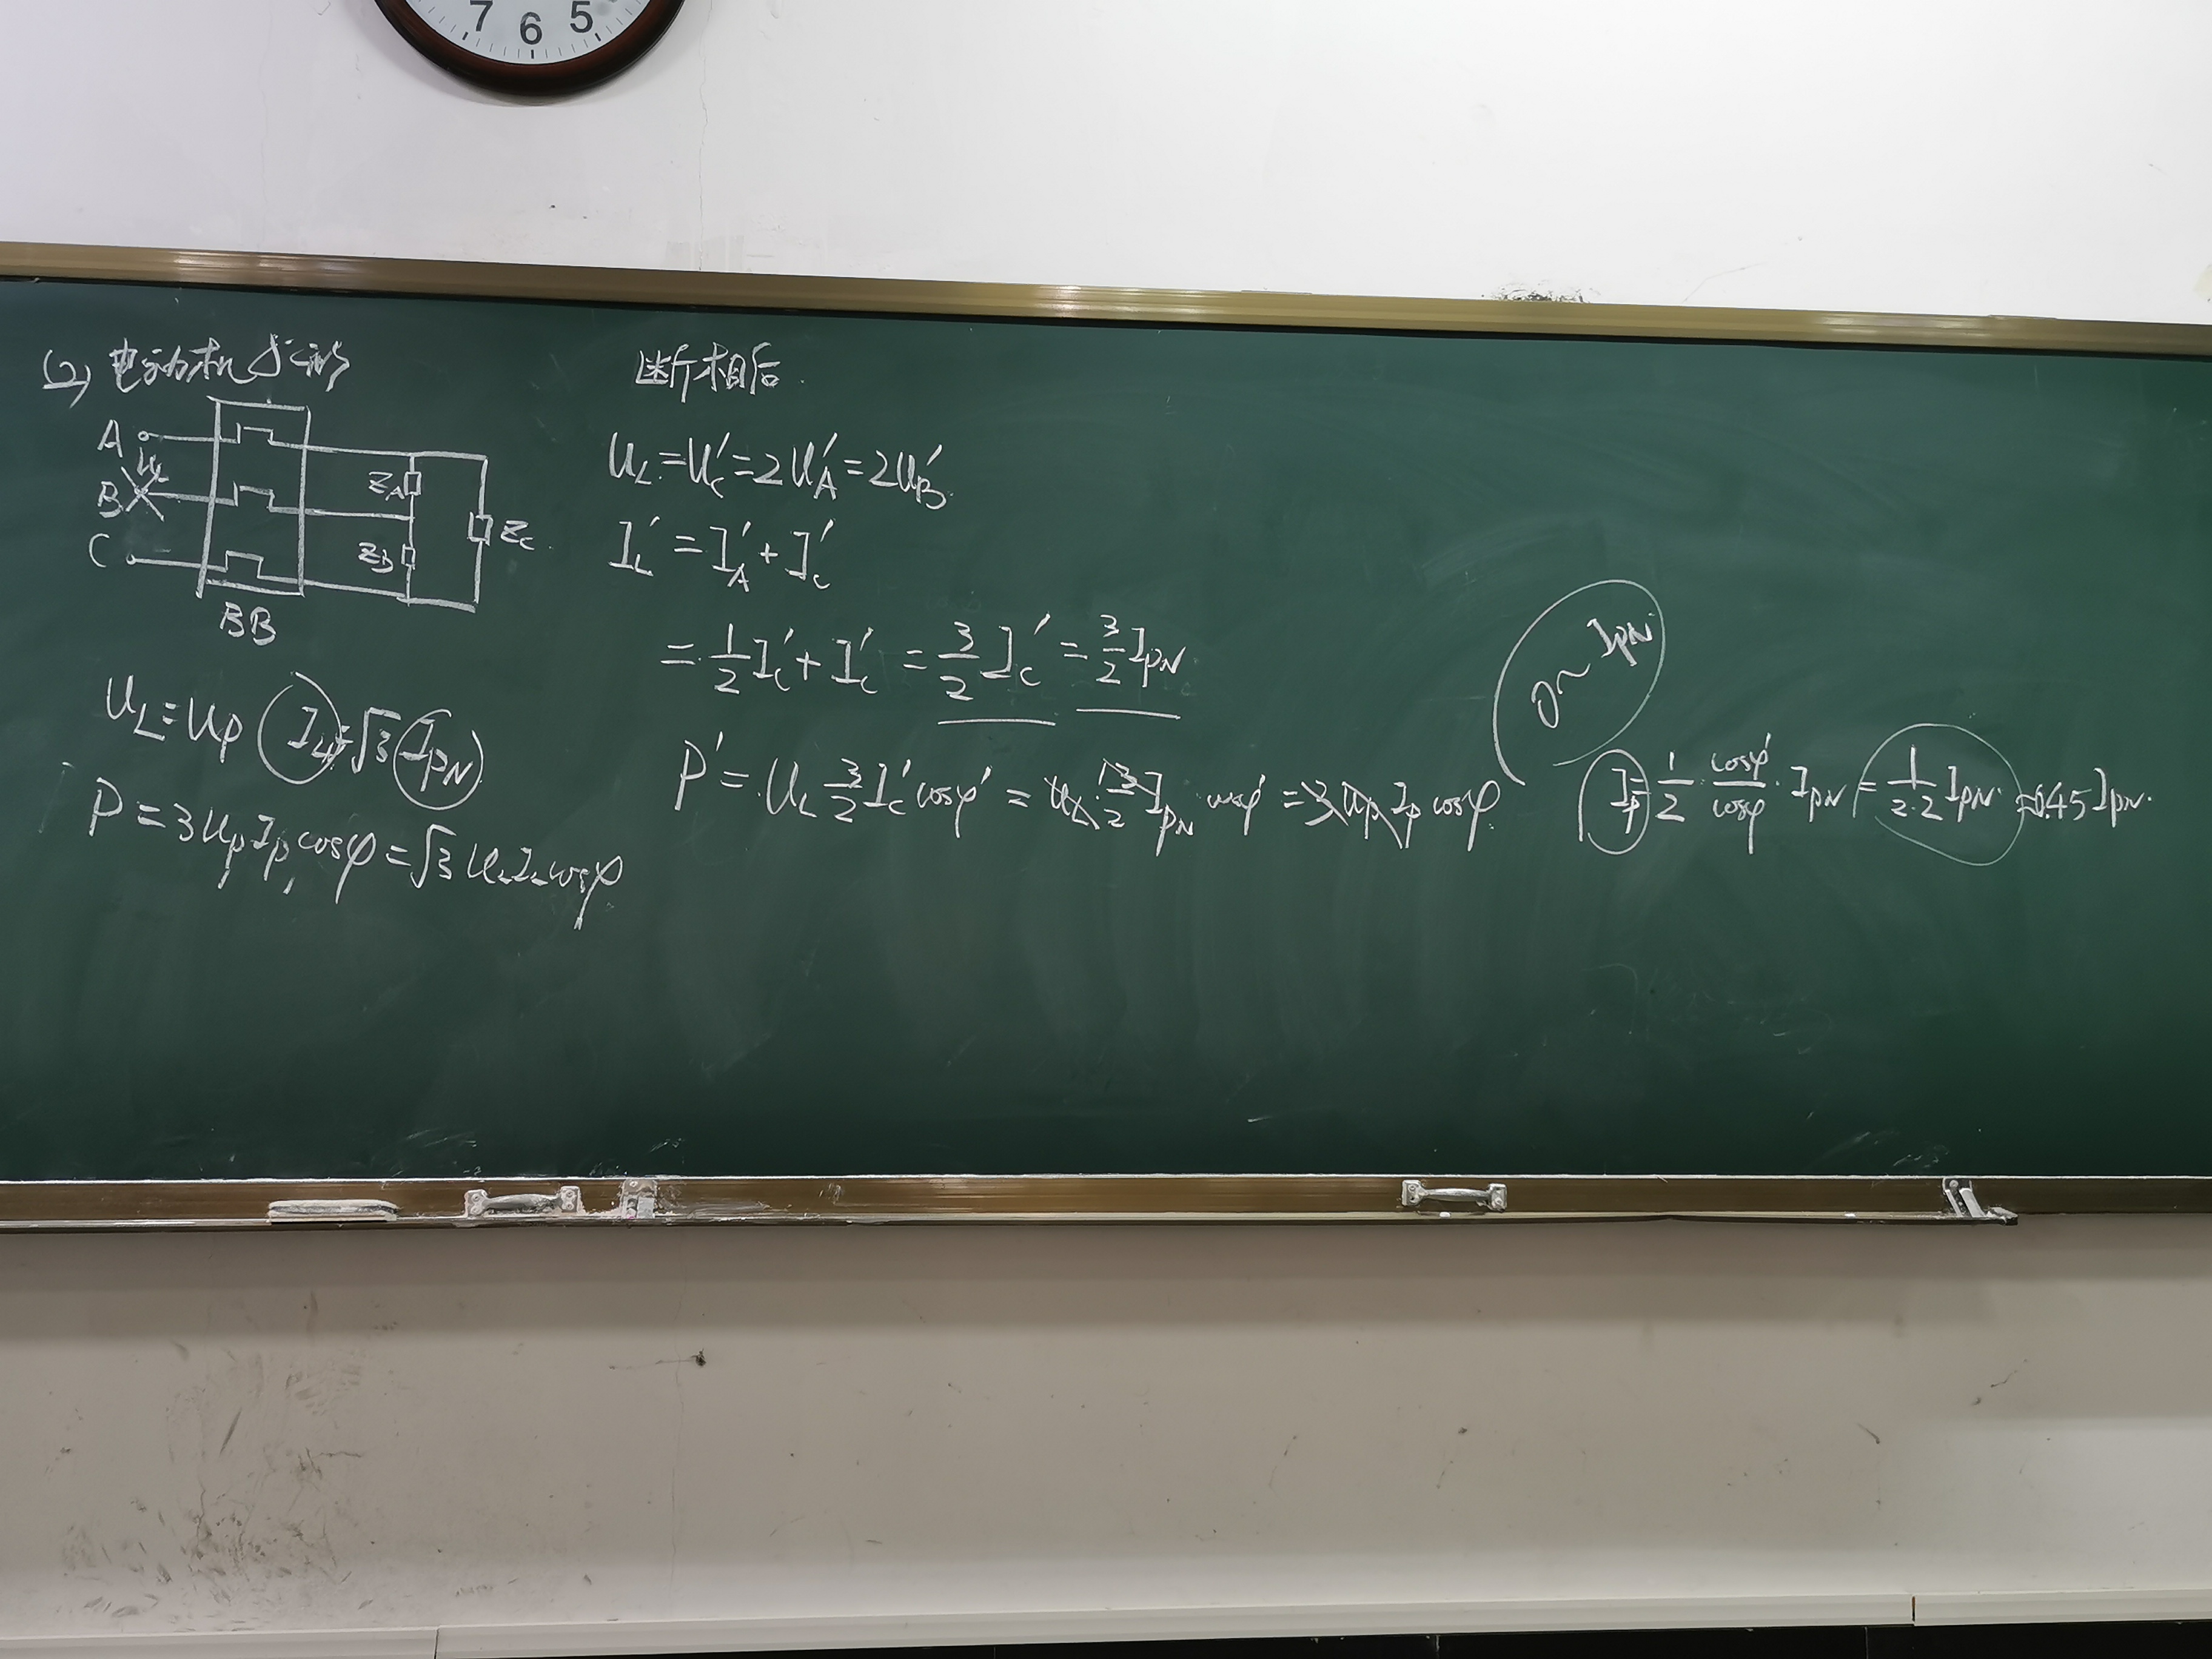 7 6 5
(2) 电动机
A
B
C
Z_A
Z_B
Z_C
BB
U_L=U_P I_L=√3 I_PN
P=3U_P I_P cosφ=√3 U_L I_L cosφ
断相后
U_L=U_C'=2U_A'=2U_B'
I_L'=I_A'+I_C'
=1/2 I_C'+I_C'=3/2 I_C'=3/2 I_PN
P'=U_L 3/2 I_C' cosφ'=U_L·3/2 I_PN cosφ'=3U_P I_P cosφ
0~I_PN
I_P=1/2·cosφ'/cosφ·I_PN=1/2.2 I_PN≈0.45 I_PN.